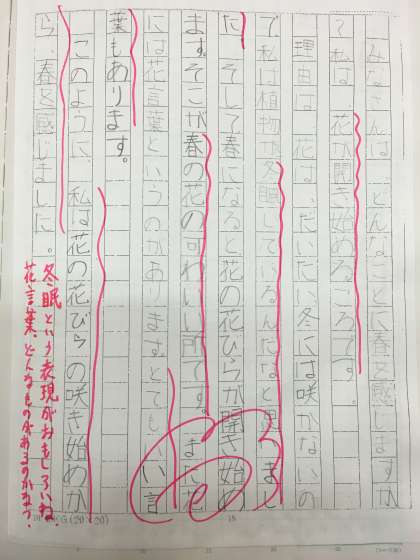 みなさんは、どんなことに春を感じますか
て私は、花が開き始めるころです。
理由は、花は、だいたい冬には咲かないの
で私は植物が冬眠しているんだなと思いまし
た。そして春になると、花の花びらが開き始め
ます。そこが春の花の可わいい所です。また花
には花言葉というのがあります。とてもいい言
葉もあります。
このように、私は花の花びらの咲き始めか
ら、春を感じました。
冬眠という表現がおもしろいね。
花言葉、どんなものがあるのかな?
G(20×20)
18